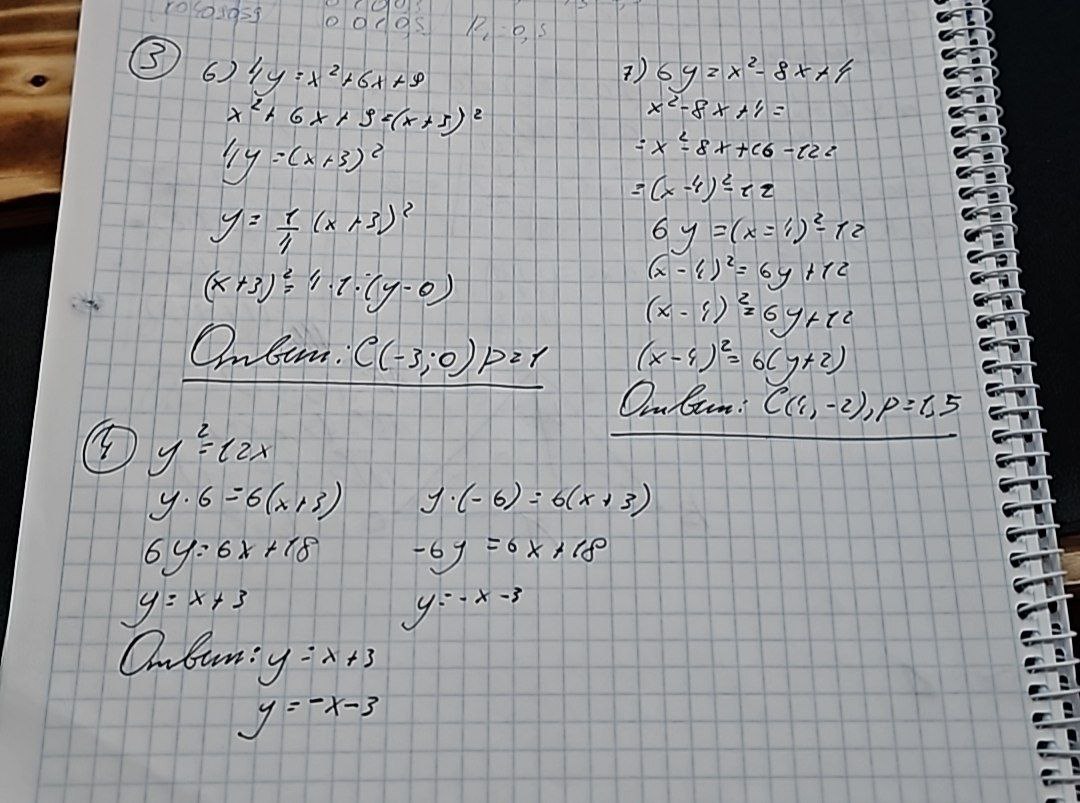 3
6) 4y = x² + 6x + 9
x² + 6x + 9 = (x + 3)²
4y = (x + 3)²
y = 1/4 (x + 3)²
(x + 3)² = 4 · 1 · (y - 0)
Ответ: C(-3; 0) p = 1
7) 6y = x² - 8x + 4
x² - 8x + 4 =
= x² - 8x + 16 - 12 =
= (x - 4)² - 12
6y = (x - 4)² - 12
(x - 4)² = 6y + 12
(x - 4)² = 6y + 12
(x - 4)² = 6(y + 2)
Ответ: C(4, -2), p = 1,5
4
y² = 12x
y · 6 = 6(x + 3)
6y = 6x + 18
y = x + 3
y · (-6) = 6(x + 3)
-6y = 6x + 18
y = -x - 3
Ответ: y = x + 3
y = -x - 3